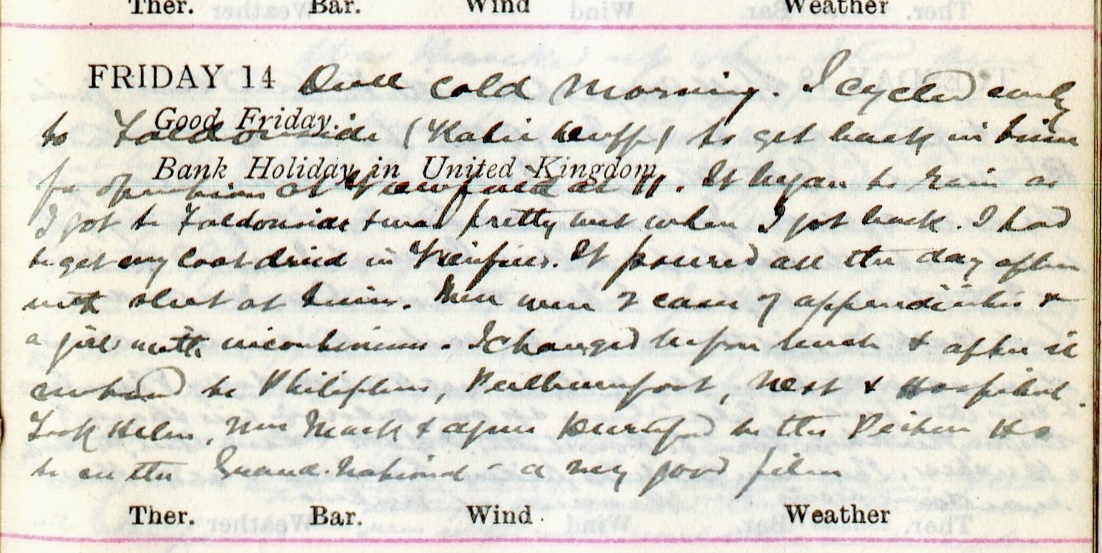 Ther. Bar. Wind Weather
FRIDAY 14 Dull cold morning. I cycled early
Good Friday.
to Faldonside (Katie to get back in time
Bank Holiday in United Kingdom
for operations at Viewfield at 11. It began to rain as
I got to Faldonside & was pretty wet when I got back. I had
to get my coat dried in It poured all the day often
with sleet at times. There were 2 cases of appendicitis &
a girl with I changed before lunch & after it
to Philiphaugh, Nest & Hospital.
Took Helen, Mrs Mack & Agnes to the
to see the Grand National - a very good film
Ther. Bar. Wind Weather